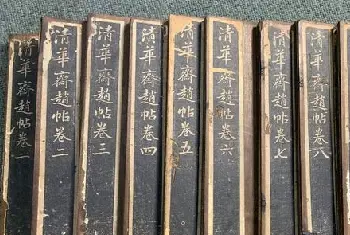 清華齋趙帖卷一
清華齋趙帖卷二
清華齋趙帖卷三
清華齋趙帖卷四
清華齋趙帖卷五
清華齋趙帖卷六
清華齋趙帖卷七
清華齋趙帖卷八